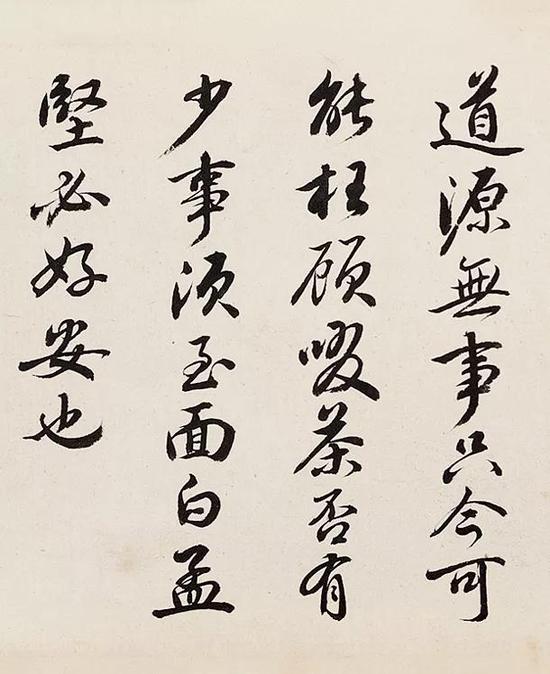 道源無事只今可
能枉顧啜茶否有
少事須至面白孟
堅必好安也